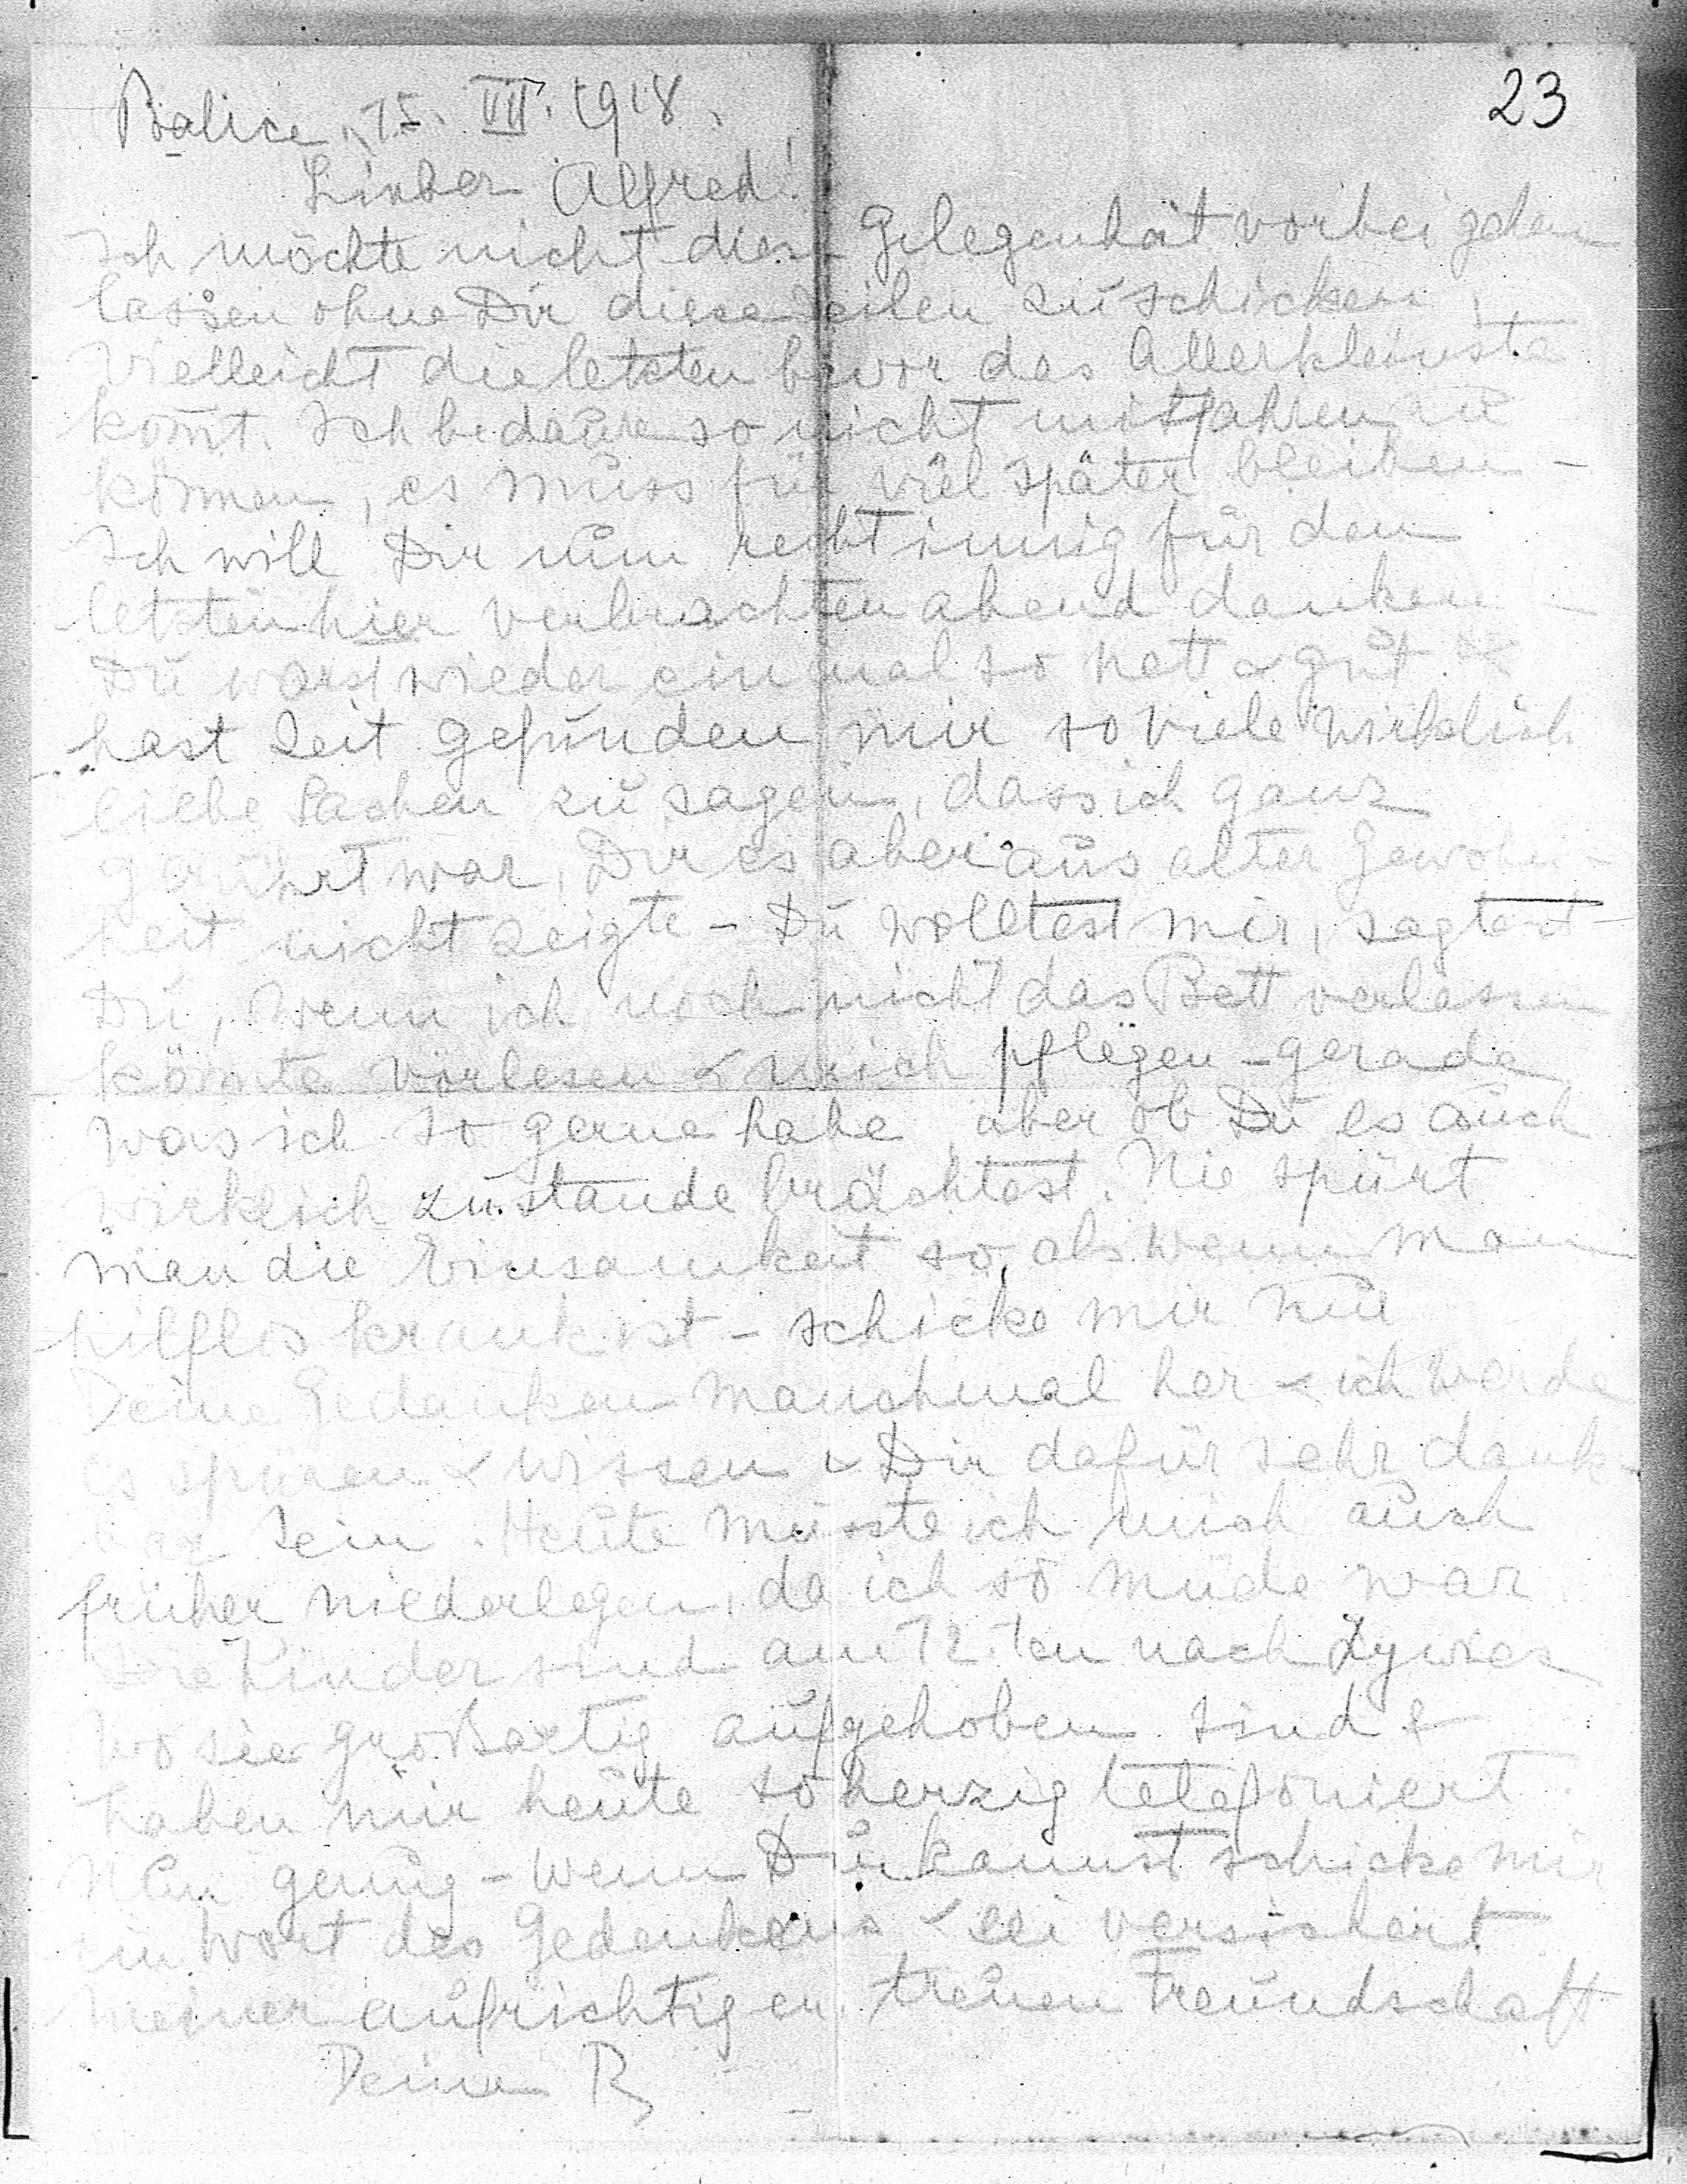 23
Balice, 15. VII. 1918.
Lieber Alfred!
Ich möchte nicht diese Gelegenheit vorbeigehen
lassen ohne Dir diese Zeilen zu schicken,
vielleicht die letzten bevor das Allerkleinste
kommt. Ich bedaure so nicht mitfahren zu
können, es muss für viel später bleiben –
Ich will Dir nun recht innig für den
letzten hier verbrachten abend danken –
Du warst wieder einmal so nett & gut &
hast Zeit gefunden mir so viele wirklich
liebe Sachen zu sagen, dass ich ganz
gerührt war, Dir es aber aus alter Gewohn-
heit nicht zeigte – Du wolltest mir, sagtest
Du, wenn ich noch nicht das Bett verlassen
könnte vorlesen & mich pflegen – gerade
was ich so gerne habe, aber ob Du es auch
wirklich zustande brächtest. Nie spürt
man die Einsamkeit so, als wenn man
hilflos krank ist – schicke mir nur
Deine Gedanken manchmal her & ich werde
es spüren & wissen & Dir dafür sehr dank-
bar sein. Heute musste ich mich auch
früher niederlegen, da ich so müde war.
Die Kinder sind am 12.ten nach Zywiec
wo sie großartig aufgehoben sind &
haben mir heute so herzig telefoniert.
Nun genug – wenn Du kannst schicke mir
ein Wort des Gedenkens & sei versichert
meiner aufrichtigen treuen Freundschaft
Deine R